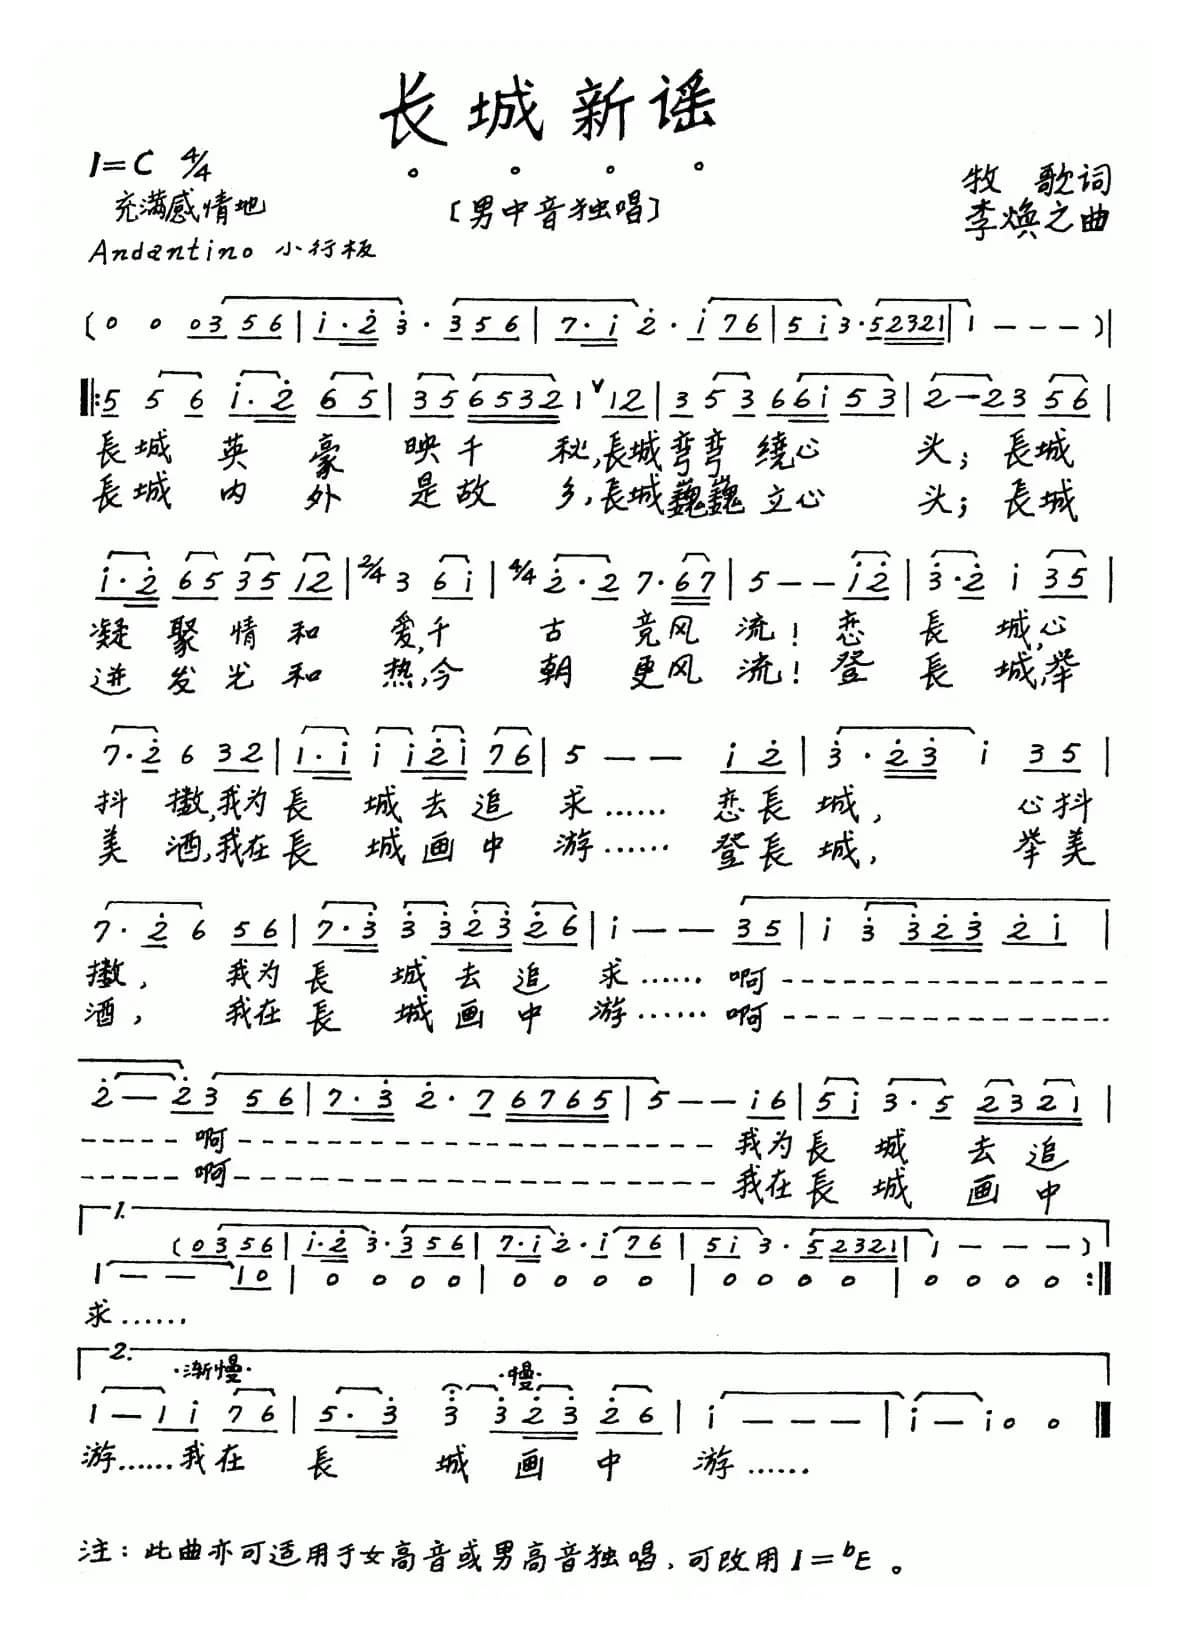 长城新谣
1=C 4/4
充满感情地
〔男中音独唱〕
牧 歌词
李焕之曲
Andantino 小行板
(0 0 03 56 | i·2 3·3 56 | 7·i 2·i 76 | 5i 3·52321 | 1 - - - )|
‖:5 56 i·2 65 | 356532 1 ∨ 12 | 3 53 66i 53 | 2-23 56 |
長城 英 豪 映千 秋,長城弯弯 绕心 头; 長城
長城 内 外 是故 乡,長城巍巍 立心 头; 長城
i·2 65 35 12 | 2/4 3 6i | 4/4 2·2 7·67 | 5 - - i2 | 3·2 i 35 |
凝 聚 情 和 爱,千 古 竞风 流! 恋 長 城,心
迸 发 光 和 热,今 朝 更风 流! 登 長 城,举
7·2 6 32 | 1·i ii2i 76 | 5 - - i2 | 3·23 i 35 |
抖 擞,我为 長 城去追 求…… 恋長 城, 心抖
美 酒,我在 長 城画中 游…… 登長 城, 举美
7·2 6 56 | 7·3 3323 26 | i - - 35 | i 3 323 2i |
擞, 我为 長 城去追 求…… 啊
酒, 我在 長 城画中 游…… 啊
2 - 23 56 | 7·3 2·7 6765 | 5 - - i6 | 5i 3·5 2321 |
啊 我为長 城 去 追
啊 我在長 城 画 中
1.
(03 56 | i·2 3·3 56 | 7·i 2·i 76 | 5i 3·52321 | 1 - - - )
1 - - 10 | 0 0 0 0 | 0 0 0 0 | 0 0 0 0 | 0 0 0 0 :‖
求……
2.
·渐慢· ·慢·
1 - 1i 76 | 5·3 3 323 26 | i - - - | i - i0 0 ‖
游……我在 長 城 画 中 游……
注:此曲亦可适用于女高音或男高音独唱,可改用1=ᵇE。